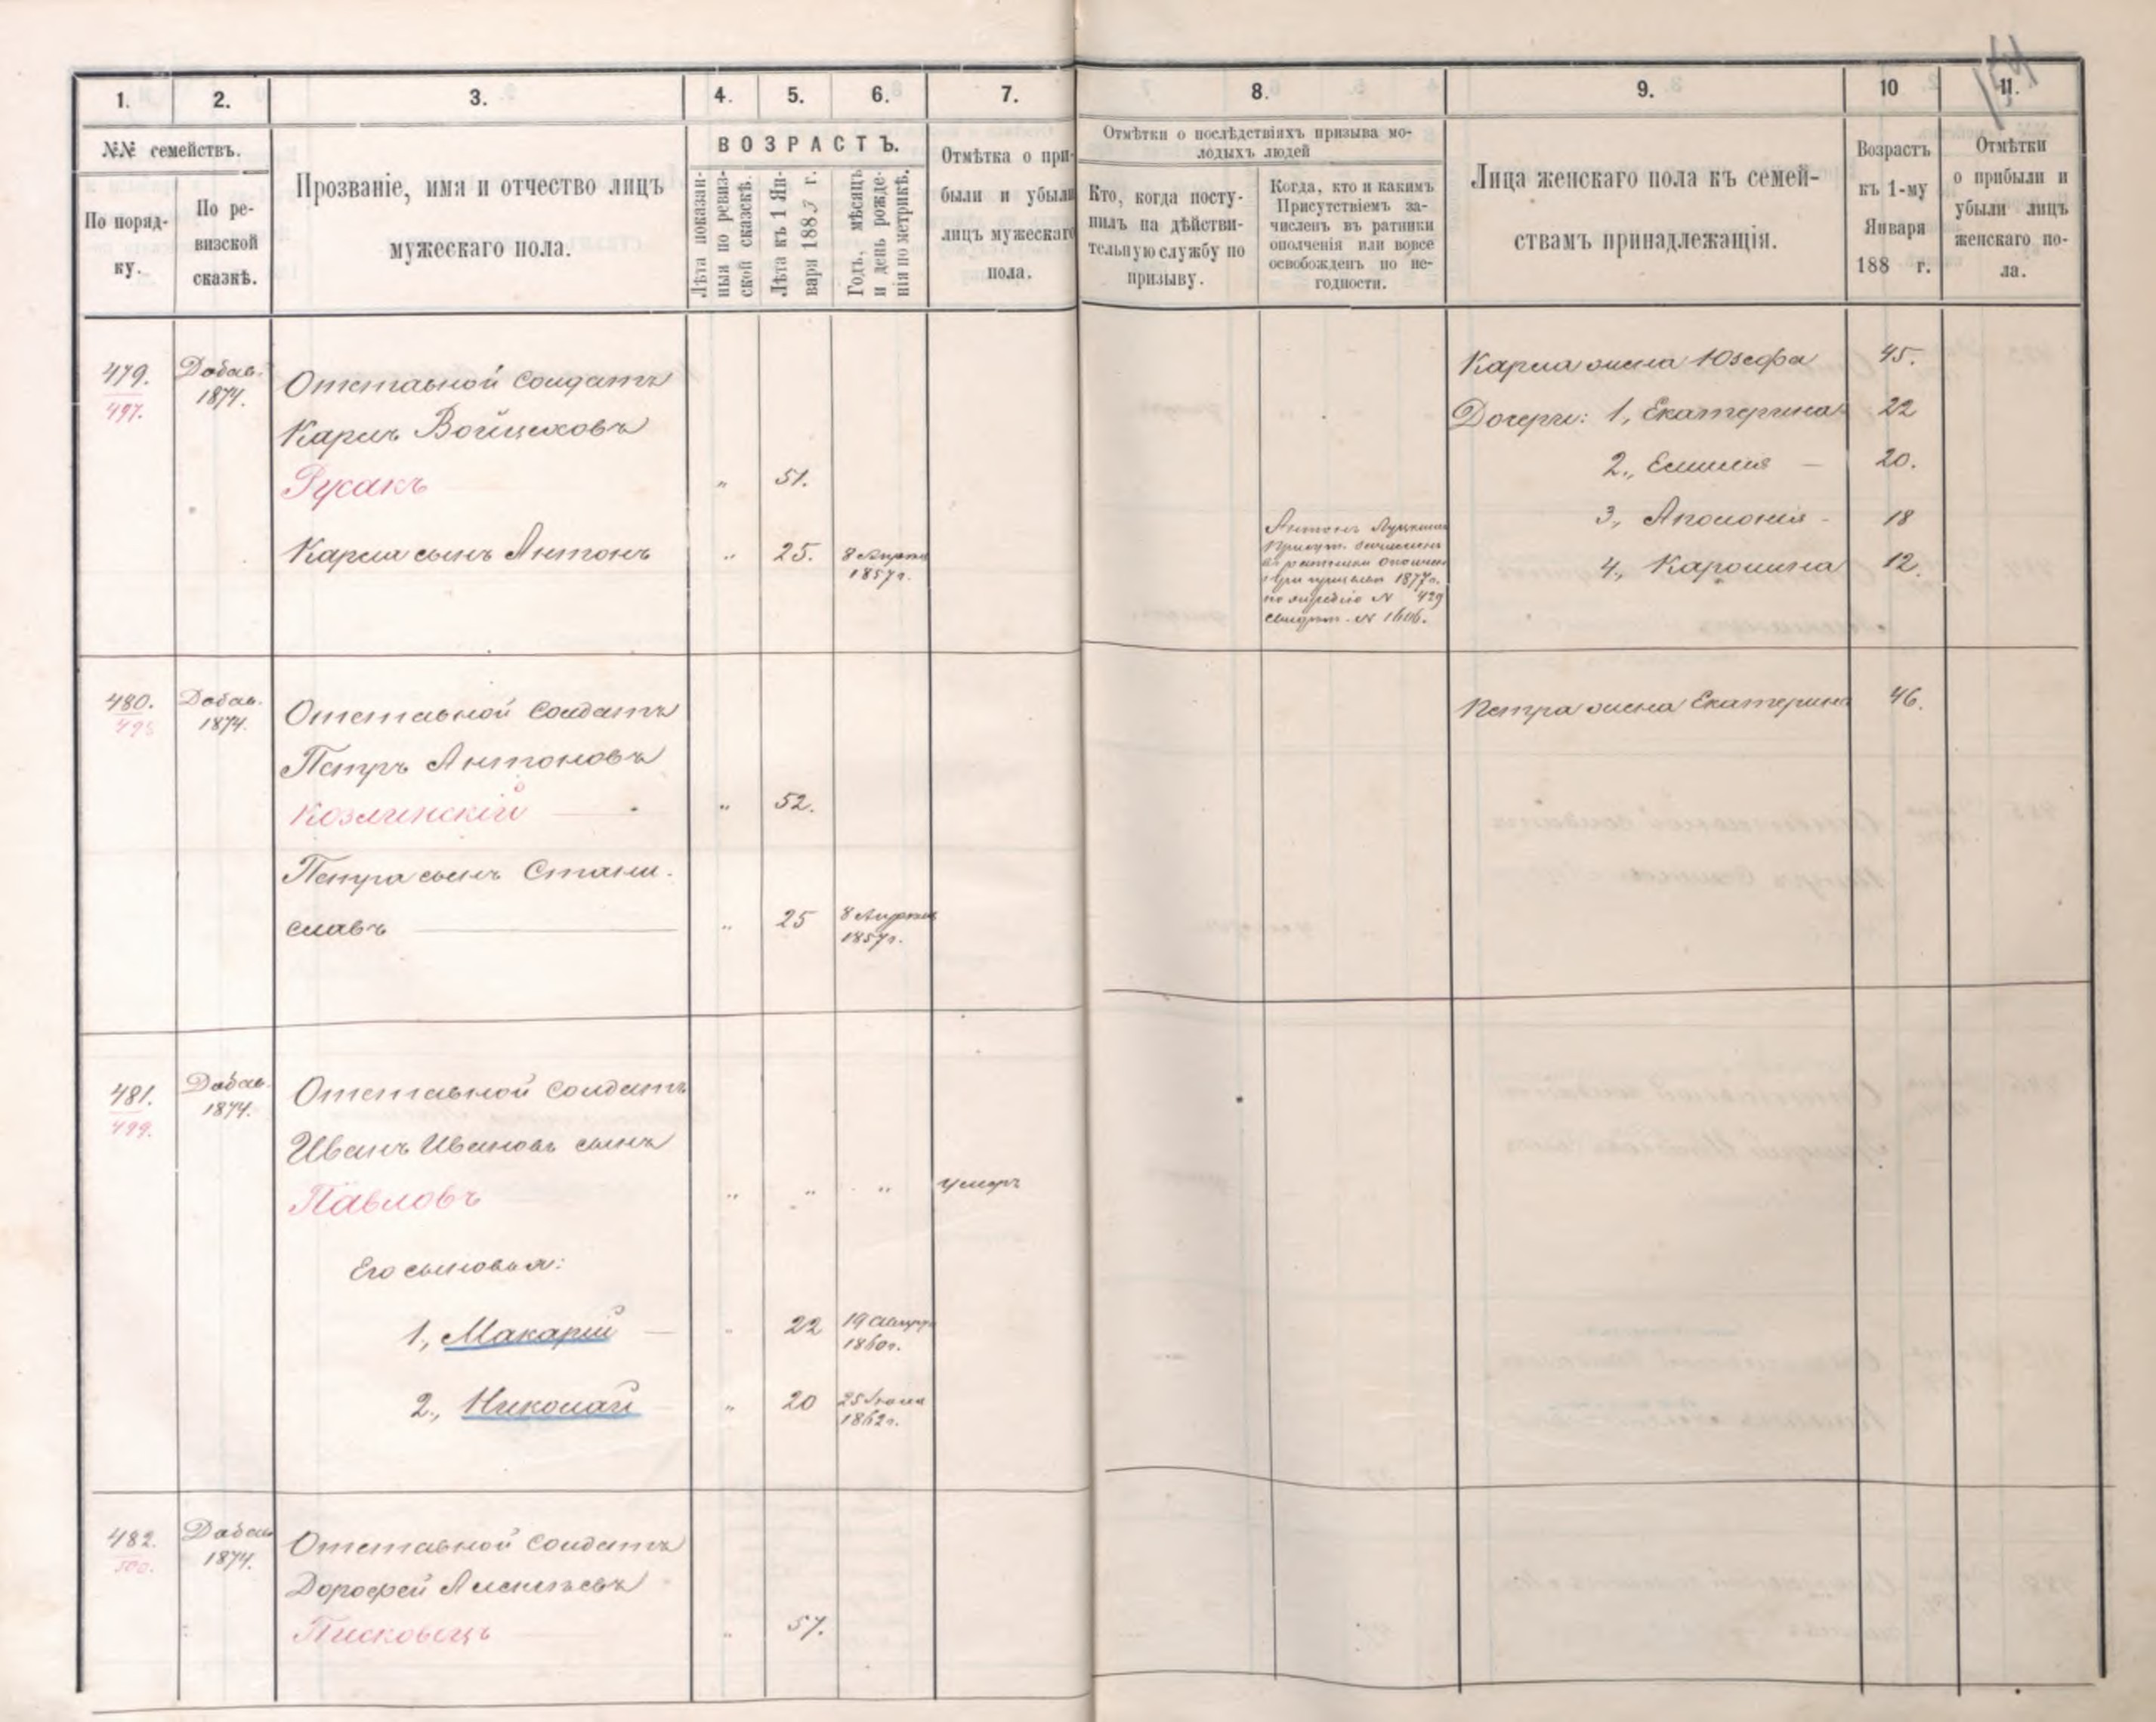 1. 2. 3. 4. 5. 6. 7. 8. 9. 10 11.
№№ семействъ.
По поряд-
ку.
По ре-
визской
сказкѣ.
Прозваніе, имя и отчество лицъ
мужескаго пола.
ВОЗРАСТЪ.
Лѣта показан-
ныя по ревиз-
ской сказкѣ.
Лѣта къ 1 Ян-
варя 1883 г.
Годъ, мѣсяцъ
и день рожде-
нія по метрикѣ.
Отмѣтка о при-
были и убыли
лицъ мужескаго
пола.
Отмѣтки о послѣдствіяхъ призыва мо-
лодыхъ людей
Кто, когда посту-
пилъ на дѣйстви-
тельную службу по
призыву.
Когда, кто и какимъ
Присутствіемъ за-
численъ въ ратники
ополченія или вовсе
освобожденъ по не-
годности.
Лица женскаго пола къ семей-
ствамъ принадлежащія.
Возрастъ
къ 1-му
Января
188 г.
Отмѣтки
о прибыли и
убыли лицъ
женскаго по-
ла.
479.
497.
Добав.
1874.
Отставной Солдатъ
Карлъ Войцеховъ
Русакъ „ 51.
Карла сынъ Антонъ „ 25. 8 Апрѣля
1857 г.
Антонъ
Присут. зачисленъ
въ ратники ополчен
при призывѣ 1877 г.
по жребію № 429
№ 1606.
Карла жена Юзефа 45.
Дочери: 1, Екатерина 22
2., Емилія — 20.
3, Аполонія - 18
4., Каролина 12.
480.
498
Добав.
1874.
Отставной Солдатъ
Петръ Антоновъ
Козлинскій „ 52.
Петра сынъ Стани-
славъ „ 25 8 Апрѣля
1857 г.
Петра жена Екатерина 46.
481.
499.
Добав.
1874.
Отставной Солдатъ
Иванъ Ивановъ сынъ
Павловъ „ „ „ умеръ
Его сыновья:
1., Макарій — „ 22 19
1860 г.
2., Николай „ 20 25
1862 г.
482.
500.
Добав.
1874.
Отставной Солдатъ
Дорофей Алексѣевъ
Писковецъ „ 57.